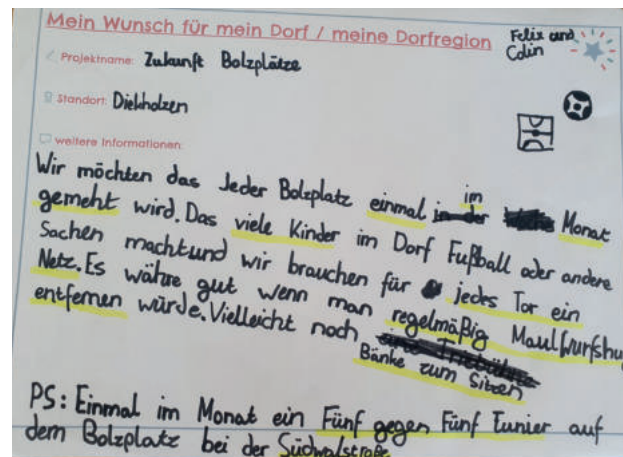 Mein Wunsch für mein Dorf / meine Dorfregion
Felix und
Colin
Projektname: Zukunft Bolzplätze
Standort: Diekholzen
weitere Informationen:
Wir möchten das Jeder Bolzplatz einmal in der im Monat
gemeht wird. Das viele Kinder im Dorf Fußball oder andere
Sachen macht und wir brauchen für jedes Tor ein
Netz. Es währe gut wenn man regelmäßig Maulwurfshu
entfernen würde. Vielleicht noch
Bänke zum Sitzen
PS: Einmal im Monat ein Fünf gegen Fünf Tunier auf
dem Bolzplatz bei der Südwalstraße